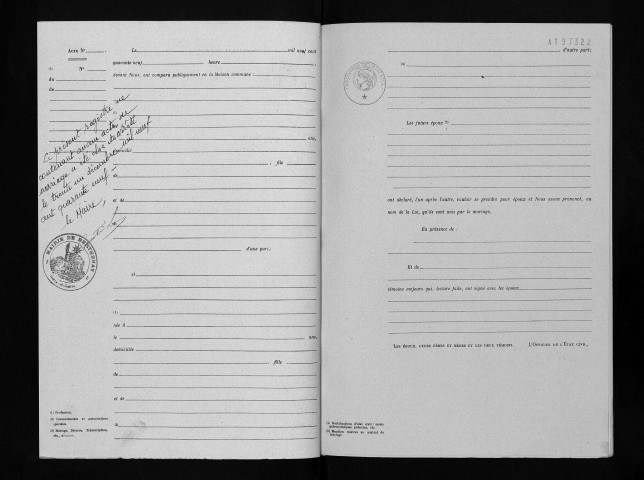 Acte N°
Le mil neuf cent
quarante-neuf heure
devant Nous, ont comparu publiquement en la Maison commune :
N°
du
de
Le présent registre ne
contenant aucun acte de
mariage a été clos et arrêté
le trente un décembre mil neuf
cent quarante neuf.
le Maire,
MAIRIE DE
né à
le
domicilié
fils
de
et de
d'une part;
et
née à
le
domiciliée
fille
de
et de
(1) Profession.
(2) Consentements et autorisations
spéciales.
(3) Mariage, Divorce, Transcription,
etc.,
AT97322
d'autre part;
Les futurs époux
ont déclaré, l'un après l'autre, vouloir se prendre pour époux et Nous avons prononcé, au
nom de la Loi, qu'ils sont unis par le mariage.
En présence de :
Et de
témoins majeurs qui, lecture faite, ont signé avec les époux
LES ÉPOUX, LEURS PÈRES ET MÈRES ET LES DEUX TÉMOINS.
L'OFFICIER DE L'ÉTAT CIVIL,
mariage